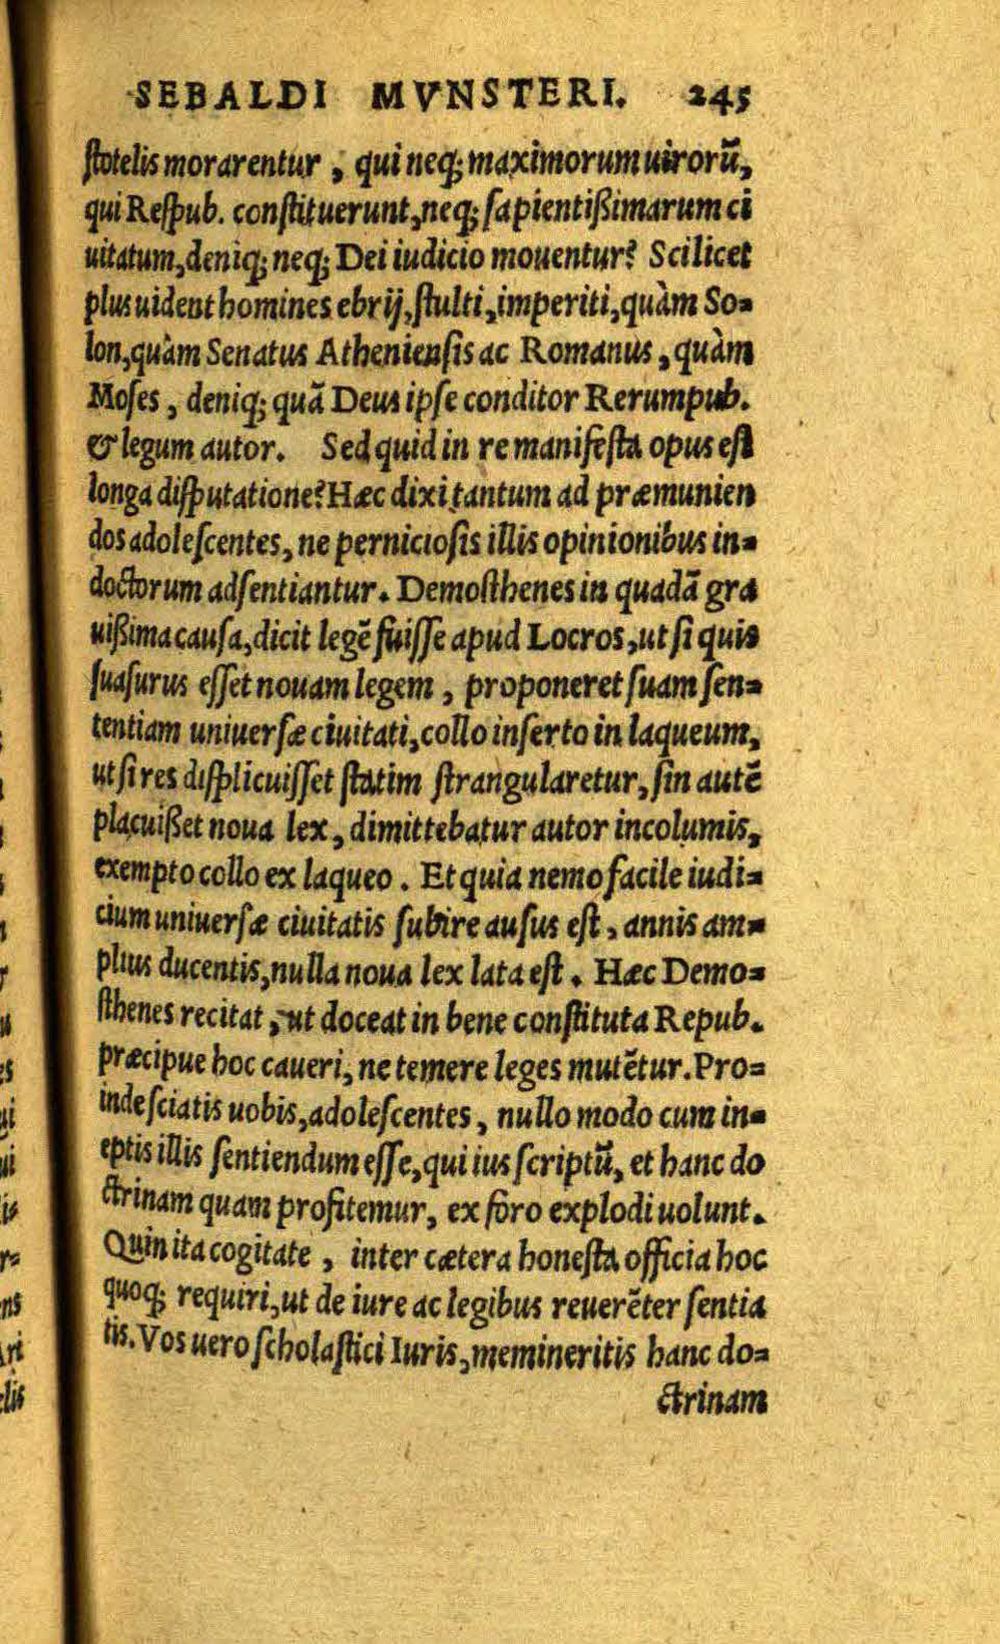 SEBALDI MVNSTERI. 245
ſtotelis morarentur, qui neq; maximorum uirorũ,
qui Reſpub. conſtituerunt, neq; ſapientißimarum ci
uitatum, deniq; neq; Dei iudicio mouentur? Scilicet
plus uident homines ebrij, ſtulti, imperiti, quàm So⸗
lon, quàm Senatus Athenienſis ac Romanus, quàm
Moſes, deniq; quã Deus ipſe conditor Rerumpub.
& legum autor. Sed quid in re manifeſta opus eſt
longa diſputatione? Hæc dixi tantum ad præmunien
dos adoleſcentes, ne pernicioſis illis opinionibus in⸗
doctorum adſentiantur. Demoſthenes in quadã gra
uißima cauſa, dicit legẽ fuiſſe apud Locros, ut ſi quis
ſuaſurus eſſet nouam legem, proponeret ſuam ſen⸗
tentiam uniuerſæ ciuitati, collo inſerto in laqueum,
ut ſi res diſplicuiſſet ſtatim ſtrangularetur, ſin autẽ
placuißet noua lex, dimittebatur autor incolumis,
exempto collo ex laqueo. Et quia nemo facile iudi⸗
cium uniuerſæ ciuitatis ſubire auſus eſt, annis am⸗
plius ducentis, nulla noua lex lata eſt. Hæc Demo⸗
ſthenes recitat, ut doceat in bene conſtituta Repub.
præcipue hoc caueri, ne temere leges mutẽtur. Pro⸗
inde ſciatis uobis, adoleſcentes, nullo modo cum in⸗
eptis illis ſentiendum eſſe, qui ius ſcriptũ, et hanc do
ctrinam quam profitemur, ex foro explodi uolunt.
Quin ita cogitate, inter cætera honeſta officia hoc
quoq; requiri, ut de iure ac legibus reuerẽter ſentia
tis. Vos uero ſcholaſtici Iuris, memineritis hanc do⸗
ctrinam